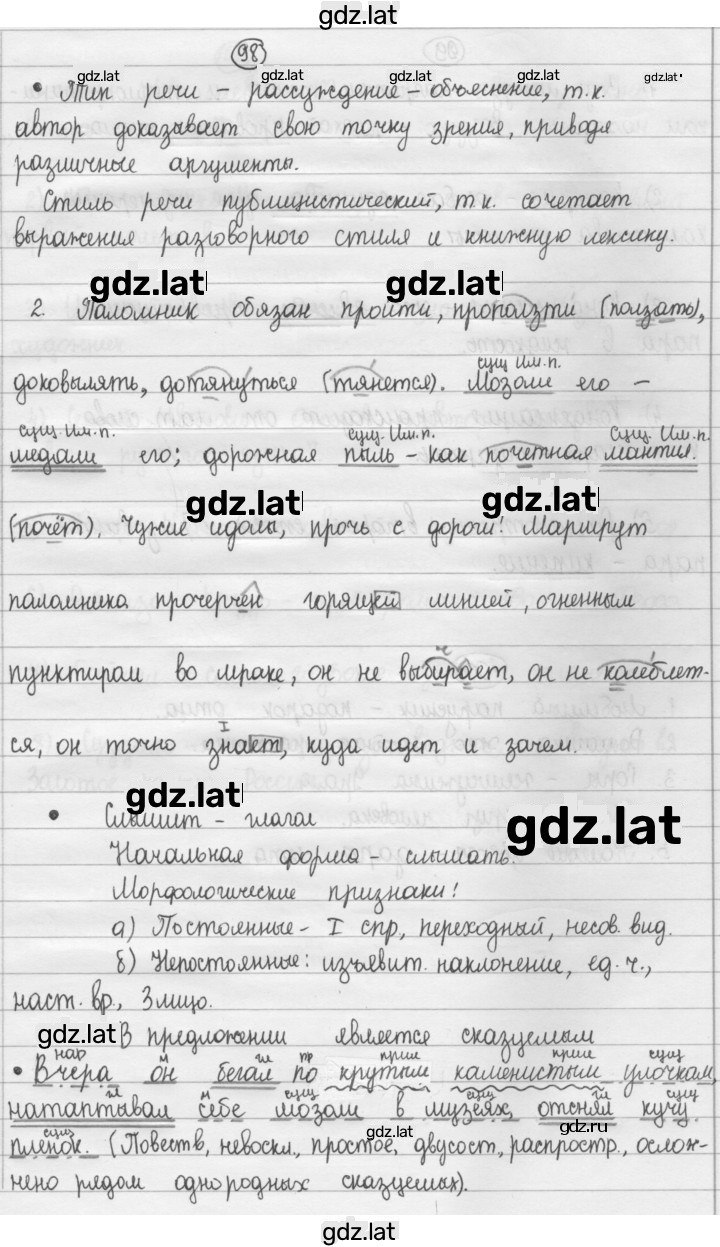 gdz.lat
98
gdz.lat gdz.lat gdz.lat
• Тип речи – рассуждение – объяснение, т.к.
автор доказывает свою точку зрения, приводя
различные аргументы.
Стиль речи публицистический, т.к. сочетает
выражения разговорного стиля и книжную лексику.
gdz.lat gdz.lat
2. Паломник обязан пройти, проползти (ползать),
доковылять, дотянуться (тянется). Мозоли его –
сущ. Им.п.
медали его; дорожная пыль – как почетная мантия
сущ. Им.п. сущ. Им.п. сущ. Им.п.
gdz.lat gdz.lat
(почёт). Чужие идолы, прочь с дороги! Маршрут
паломника прочерчен горящей линией, огненным
пунктиром во мраке, он не выбирает, он не колеблет-
I
ся, он точно знает, куда идет и зачем.
gdz.lat gdz.lat
• Слышит – глагол
Начальная форма – слышать.
Морфологические признаки:
а) Постоянные – I спр, переходный, несов. вид.
б) Непостоянные: изъявит. наклонение, ед.ч.,
наст. вр., 3 лицо.
gdz.lat В предложении является сказуемым
нар м гл пр прил прил сущ
• Вчера он бегал по крутым каменистым улочкам,
гл м сущ сущ гл сущ
натаптывал себе мозоли в музеях, отснял кучу
сущ gdz.lat gdz.ru
пленок. (Повеств, невоскл, простое, двусост, распростр., ослож-
нено рядом однородных сказуемых).
gdz.lat